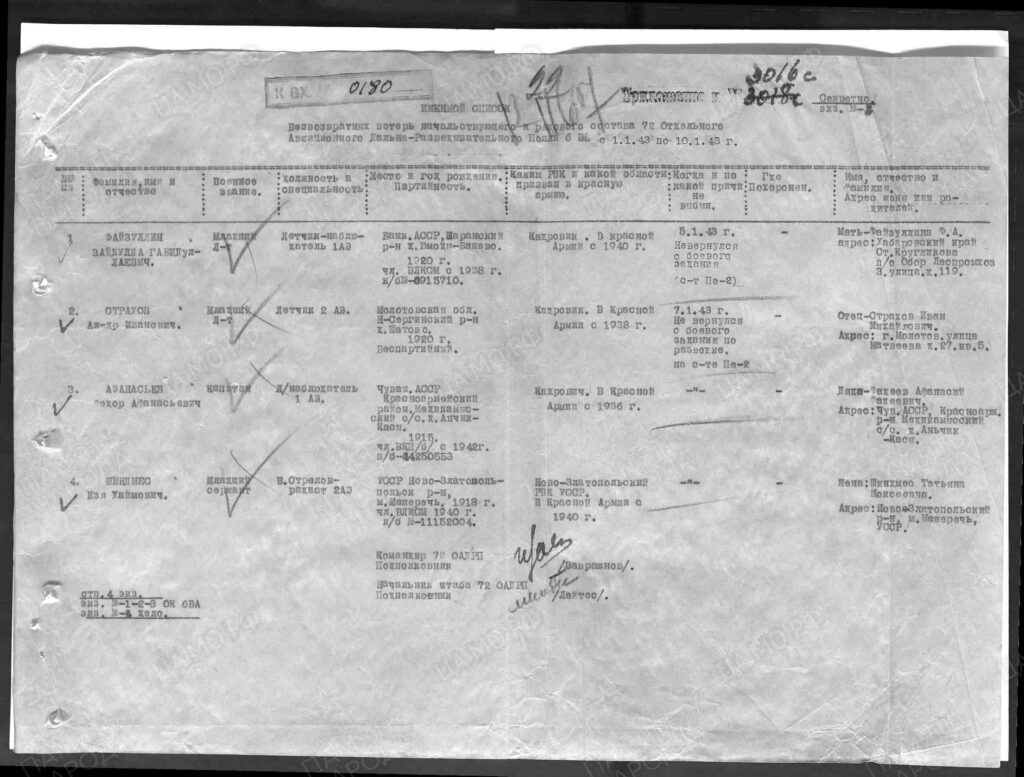 К ВХ. № 0180
22
3016с
Приложение к № 3018с
Секретно
экз. №-1
ИМЕННОЙ СПИСОК
Безвозвратных потерь начальствующего и рядового состава 72 Отдельного
Авиационного Дально-Разведывательного Полка 6 ВА. с 1.1.43 по 10.1.43 г.
№№ пп
Фамилия, имя и отчество
Военное звание.
Должность и специальность
Место и год рождения. Партийность.
Каким РВК и какой области призван в красную армию.
Когда и по какой причине выбыл.
Где Похоронен.
Имя, отчество и фамилия. Адрес жены или родителей.
1.
ФАЙЗУЛЛИН
ЗАЙДУЛЛА ГАБИДУЛ-
ЛАЕВИЧ.
Младший
Л-т
Летчик-наблю-
датель 1АЭ
Баш. АССР, Шаранский
р-н
1920 г.
чл. ВЛКСМ с 1938 г.
к/б№-6915710.
Кадровик. В красной
Армии с 1940 г.
5.1.43 г.
Невернулся
с боевого
задания
(с-т Пе-2)
-
Мать-Файзуллина Ф.А.
адрес: Хабаровский край
Ст. Кругликова
п/о Обор Леспромхоз
3.улица,д.119.
2.
СТРАХОВ
Ал-др Иванович.
Младший
Л-т
Летчик 2 АЭ.
Молотовская обл.
Н-Сергинский р-н
д.Шатово.
1920 г.
Беспартийный.
Кадровик. В Красной
Армии с 1938 г.
7.1.43 г.
Не вернулся
с боевого
задания по
разведке.
на с-те Пе-2
-
Отец-Страхов Иван
Михайлович.
Адрес: г.Молотов.улица
Матвеева д.27.кв.5.
3.
АФАНАСЬЕВ
Федор Афанасьевич
Капитан
Л/наблюдатель
1 АЭ.
Чуваш.АССР
Красноармейский
район.Медикамис-
ский с/с.д.Анчик-
Каси.
1915.
чл.ВКП/б/ с 1942г.
п/б-44250553
Кадрович. В Красной
Армии с 1936 г.
-"-
-
Дядя-Фадеев Афанасий
Фадеевич.
Адрес: Чув.АССР, Красноарм.
р-н Медикамиоский
с/с. д.Аньчик
-Каси.
4.
ШИНДМЕС
Изя Хаймович.
Младший
сержант
В.Стрелок-
радист 2АЭ
УССР Ново-Златополь-
польск р-н,
м.Межеречь, 1918 г.
чл.ВЛКСМ 1940 г.
к/б №-11152004.
Ново-Златопольский
РВК УССР.
В Красной Армии с
1940 г.
-"-
-
Жена: Шиндмес Татьяна
Моисеевна.
Адрес: Ново-Златопольский
р-н, м.Межеречь,
УССР.
Командир 72 ОАДРП
Подполковник
/Завражнов/.
Начальник штаба 72 ОАДРП
Подполковник
/Лактес/.
отп.4 экз.
экз. №-1-2-3 ОК 6ВА
экз. №-4 дело.